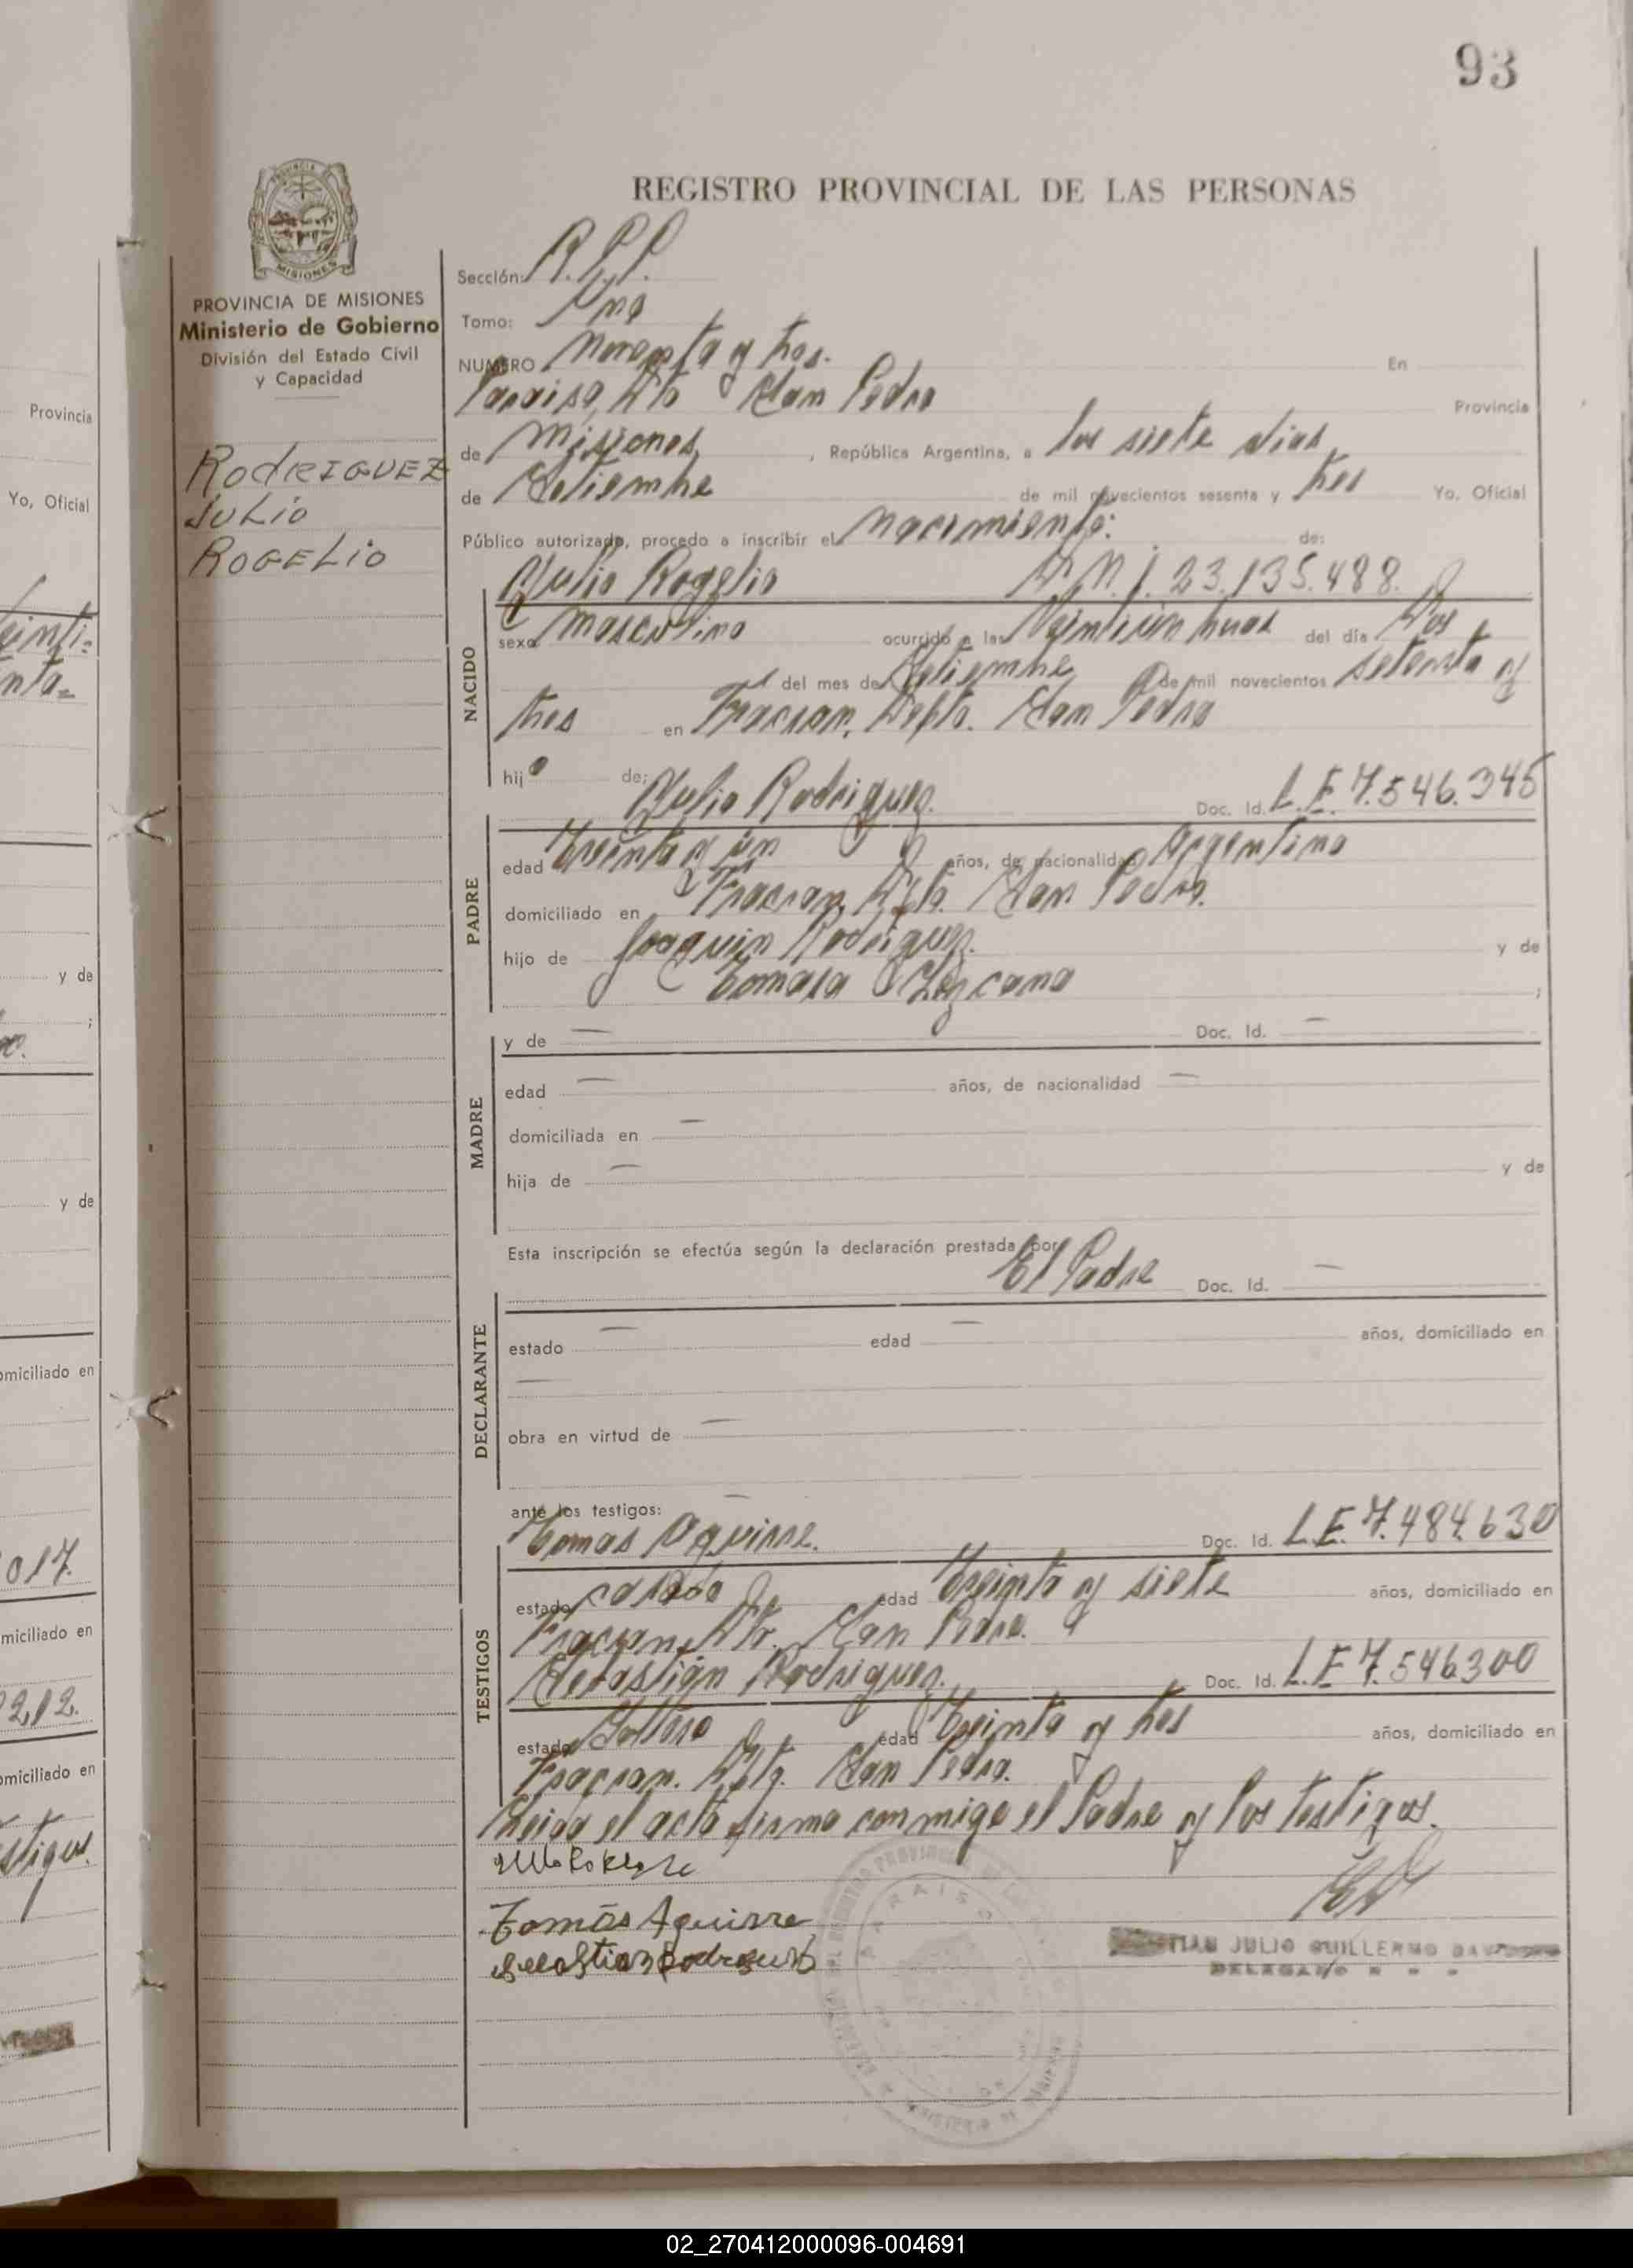 93
REGISTRO PROVINCIAL DE LAS PERSONAS
MISIONES
PROVINCIA DE MISIONES
Ministerio de Gobierno
División del Estado Civil
y Capacidad
RODRIGUEZ
JULIO
ROGELIO
Sección: R.P.P.
Tomo: Uno
NUMERO Noventa y tres. En
Paraiso, Dto San Pedro Provincia
de Misiones, , República Argentina, a los siete dias
de Setiembre de mil novecientos sesenta y tres Yo, Oficial
Público autorizado, procedo a inscribir el Nacimiento: de:
Julio Rogelio D.N.I. 23.135.488.
NACIDO
sexo Masculino ocurrido a las Veintiún horas del día Dos
del mes de Setiembre de mil novecientos setenta y
tres en Fracran, Depto. San Pedro
hijo de: Julio Rodriguez. Doc. Id. L.E. 7.546.345
PADRE
edad Treinta y un años, de nacionalidad Argentino
domiciliado en Fracran, Dpto. San Pedro.
hijo de Joaquin Rodriguez. y de
Tomasa Lezcano ;
MADRE
y de — Doc. Id. —
edad — años, de nacionalidad —
domiciliada en —
hija de — y de
Esta inscripción se efectúa según la declaración prestada por
El Padre Doc. Id. —
DECLARANTE
estado — edad — años, domiciliado en
—
obra en virtud de —
ante los testigos: —
Tomas Aguirre. Doc. Id. L.E. 7.484.630
TESTIGOS
estado casado edad Treinta y siete años, domiciliado en
Fracran, Dto. San Pedro.
Sebastián Rodriguez. Doc. Id. L.E 7.546300
estado Soltero edad Treinta y tres años, domiciliado en
Fracran. Dpto. San Pedro.
Leida el acta firma conmigo el Padre y los testigos.
Tomás Aguirre
Sebastian Rodriguez
PARAISO
JULIO GUILLERMO
DELEGADO
Provincia
Yo, Oficial
y de
;
y de
omiciliado en
017.
miciliado en
212.
omiciliado en
stigos.
02_270412000096-004691